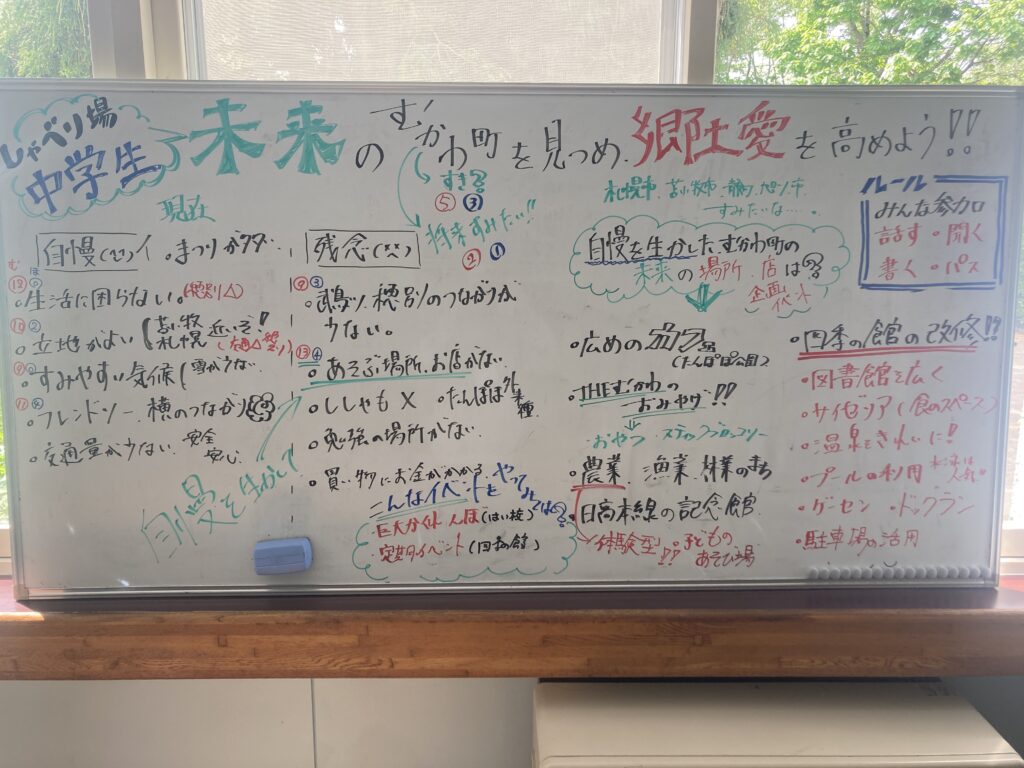 しゃべり場
中学生
未来のむかわ町を見つめ、郷土愛を高めよう!!
すき?
⑤ ③
将来すみたい!!
② ①
札幌市、苫小牧市、静内、旭川市
すみたいな…。
ルール
みんな参加
話す・聞く
書く・パス
現在
自慢(^^)イ
・まつりが多々
む ほ
・生活に困らない。(穂別△)
・立地がよい(苫小牧 札幌 近いぞ!
・すみやすい気候(雪が少ない
・フレンドリー 横のつながり
・交通量が少ない 安全 安心
自慢を生かして
残念(××)
⑨ ③
・鵡川、穂別のつながりが
少ない。
⑬ ④
・あそぶ場所、お店がない
・ししゃも×
・たんぽぽ 外来種
・勉強の場所がない
・買い物にお金がかかる
こんなイベントを やってみては?
巨大かくれんぼ(はい校)
イベント(四季館)
自慢を生かしたむかわ町の
未来の場所、店は?
企画
・広めのカフェ
(たんぽぽ公園)
・THEむかわの
おみやげ!!
おやつ スティックブロッコリー
・農業 漁業 林業のまち
・日高本線の記念館
体験型!?
・子どもの
あそび場
・四季の館の改修!?
・図書館を広く
・サイゼリア(食のスペース)
・温泉をきれいに!
・プールの利用
・ゲーセン ・ドッグラン
・駐車場の活用